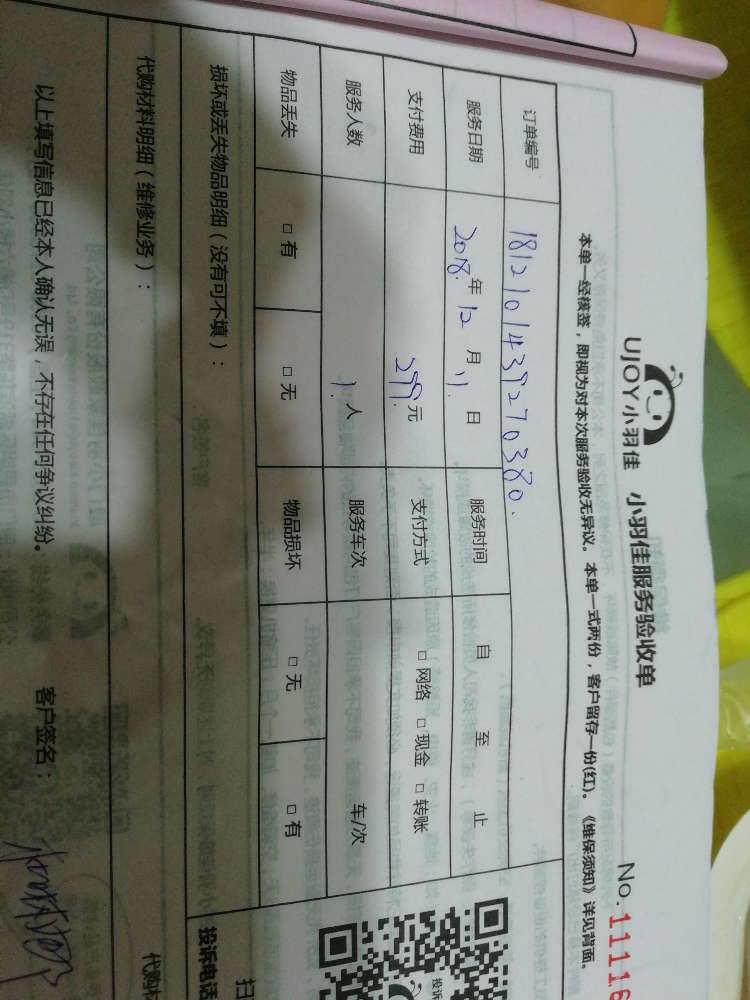 UJOY小羽佳 小羽佳服务验收单 No.11116
本单一经核签,即视为对本次服务验收无异议。本单一式两份,客户留存一份(红)。《维保须知》详见背面。
订单编号 1812101439270380.
服务日期 2018.年 12 月 11. 日 服务时间 自 至 止
支付费用 299.元 支付方式 □ 网络 □ 现金 □ 转账
服务人数 1. 人 服务车次 车/次
物品丢失 □ 有 □ 无 物品损坏 □ 无 □ 有
损坏或丢失物品明细(没有可不填):
代购材料明细(维修业务):
以上填写信息已经本人确认无误,不存在任何争议纠纷。 客户签名:
投诉
扫
投诉电话
代购材